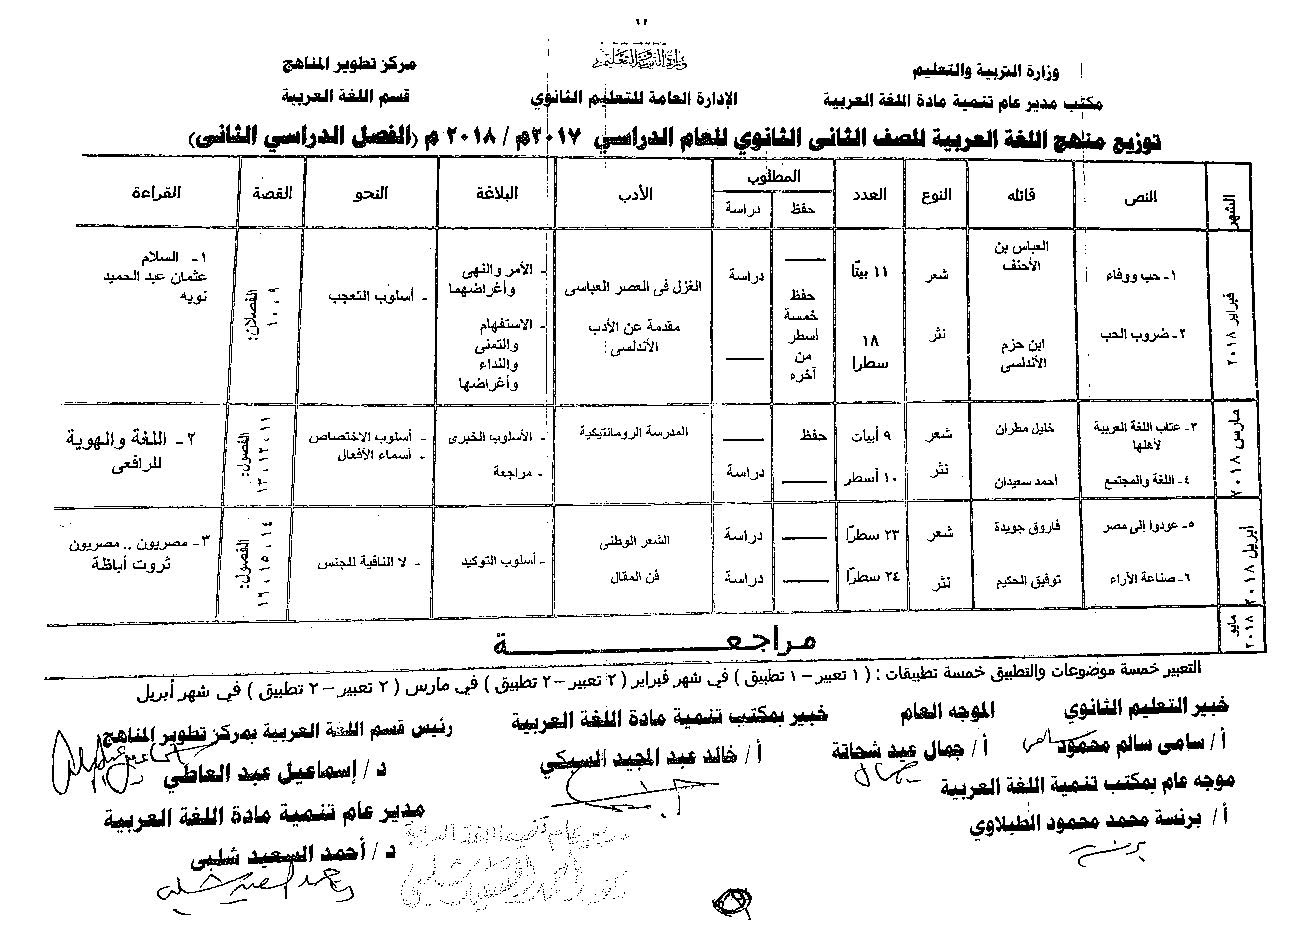 ١٢
وزارة التربية والتعليم
وزارة التربية والتعليم
مكتب مدير عام تنمية مادة اللغة العربية
الإدارة العامة للتعليم الثانوي
مركز تطوير المناهج
قسم اللغة العربية
توزيع مناهج اللغة العربية للصف الثانى الثانوي للعام الدراسي ٢٠١٧م / ٢٠١٨ م (الفصل الدراسي الثانى)
الشهر النص قائله النوع العدد المطلوب الأدب البلاغة النحو القصة القراءة
حفظ دراسة
فبراير ٢٠١٨
١- حب ووفاء
العباس بن
الأحنف
شعر
١١ بيتًا
دراسة
٢- ضروب الحب
ابن حزم
الأندلسى
نثر
١٨
سطرا
حفظ
خمسة
أسطر
من
آخره
الغزل فى العصر العباسى
مقدمة عن الأدب
الأندلسى
- الأمر والنهى
وأغراضهما
- الاستفهام
والتمنى
والنداء
وأغراضها
- أسلوب التعجب
الفصلان:
٩، ١٠
١- السلام
عثمان عبد الحميد
نويه
مارس ٢٠١٨
٣- عتاب اللغة العربية
لأهلها
خليل مطران
شعر
٩ أبيات
حفظ
٤- اللغة والمجتمع
أحمد سعيدان
نثر
١٠ أسطر
دراسة
المدرسة الرومانتيكية
- الأسلوب الخبرى
- مراجعة
- أسلوب الاختصاص
- أسماء الأفعال
الفصول:
١١، ١٢، ١٣
٢- اللغة والهوية
للرافعى
أبريل ٢٠١٨
٥- عودوا إلى مصر
فاروق جويدة
شعر
٢٣ سطرًا
دراسة
٦- صناعة الآراء
توفيق الحكيم
نثر
٢٤ سطرًا
دراسة
الشعر الوطنى
فن المقال
- أسلوب التوكيد
- لا النافية للجنس
الفصول:
١٤، ١٥، ١٦
٣- مصريون .. مصريون
ثروت أباظة
مايو ٢٠١٨
مراجعـــــــة
التعبير خمسة موضوعات والتطبيق خمسة تطبيقات : ( ١ تعبير – ١ تطبيق ) في شهر فبراير ( ٢ تعبير – ٢ تطبيق ) في مارس ( ٢ تعبير – ٢ تطبيق ) في شهر أبريل
خبير التعليم الثانوي
أ/ سامى سالم محمود
الموجه العام
أ/ جمال عيد شحاتة
خبير بمكتب تنمية مادة اللغة العربية
أ/ خالد عبد المجيد السبكي
رئيس قسم اللغة العربية بمركز تطوير المناهج
د/ إسماعيل عبد العاطي
موجه عام بمكتب تنمية اللغة العربية
أ/ برنسة محمد محمود الطيلاوي
مدير عام تنمية مادة اللغة العربية
د/ أحمد السعيد شلبي